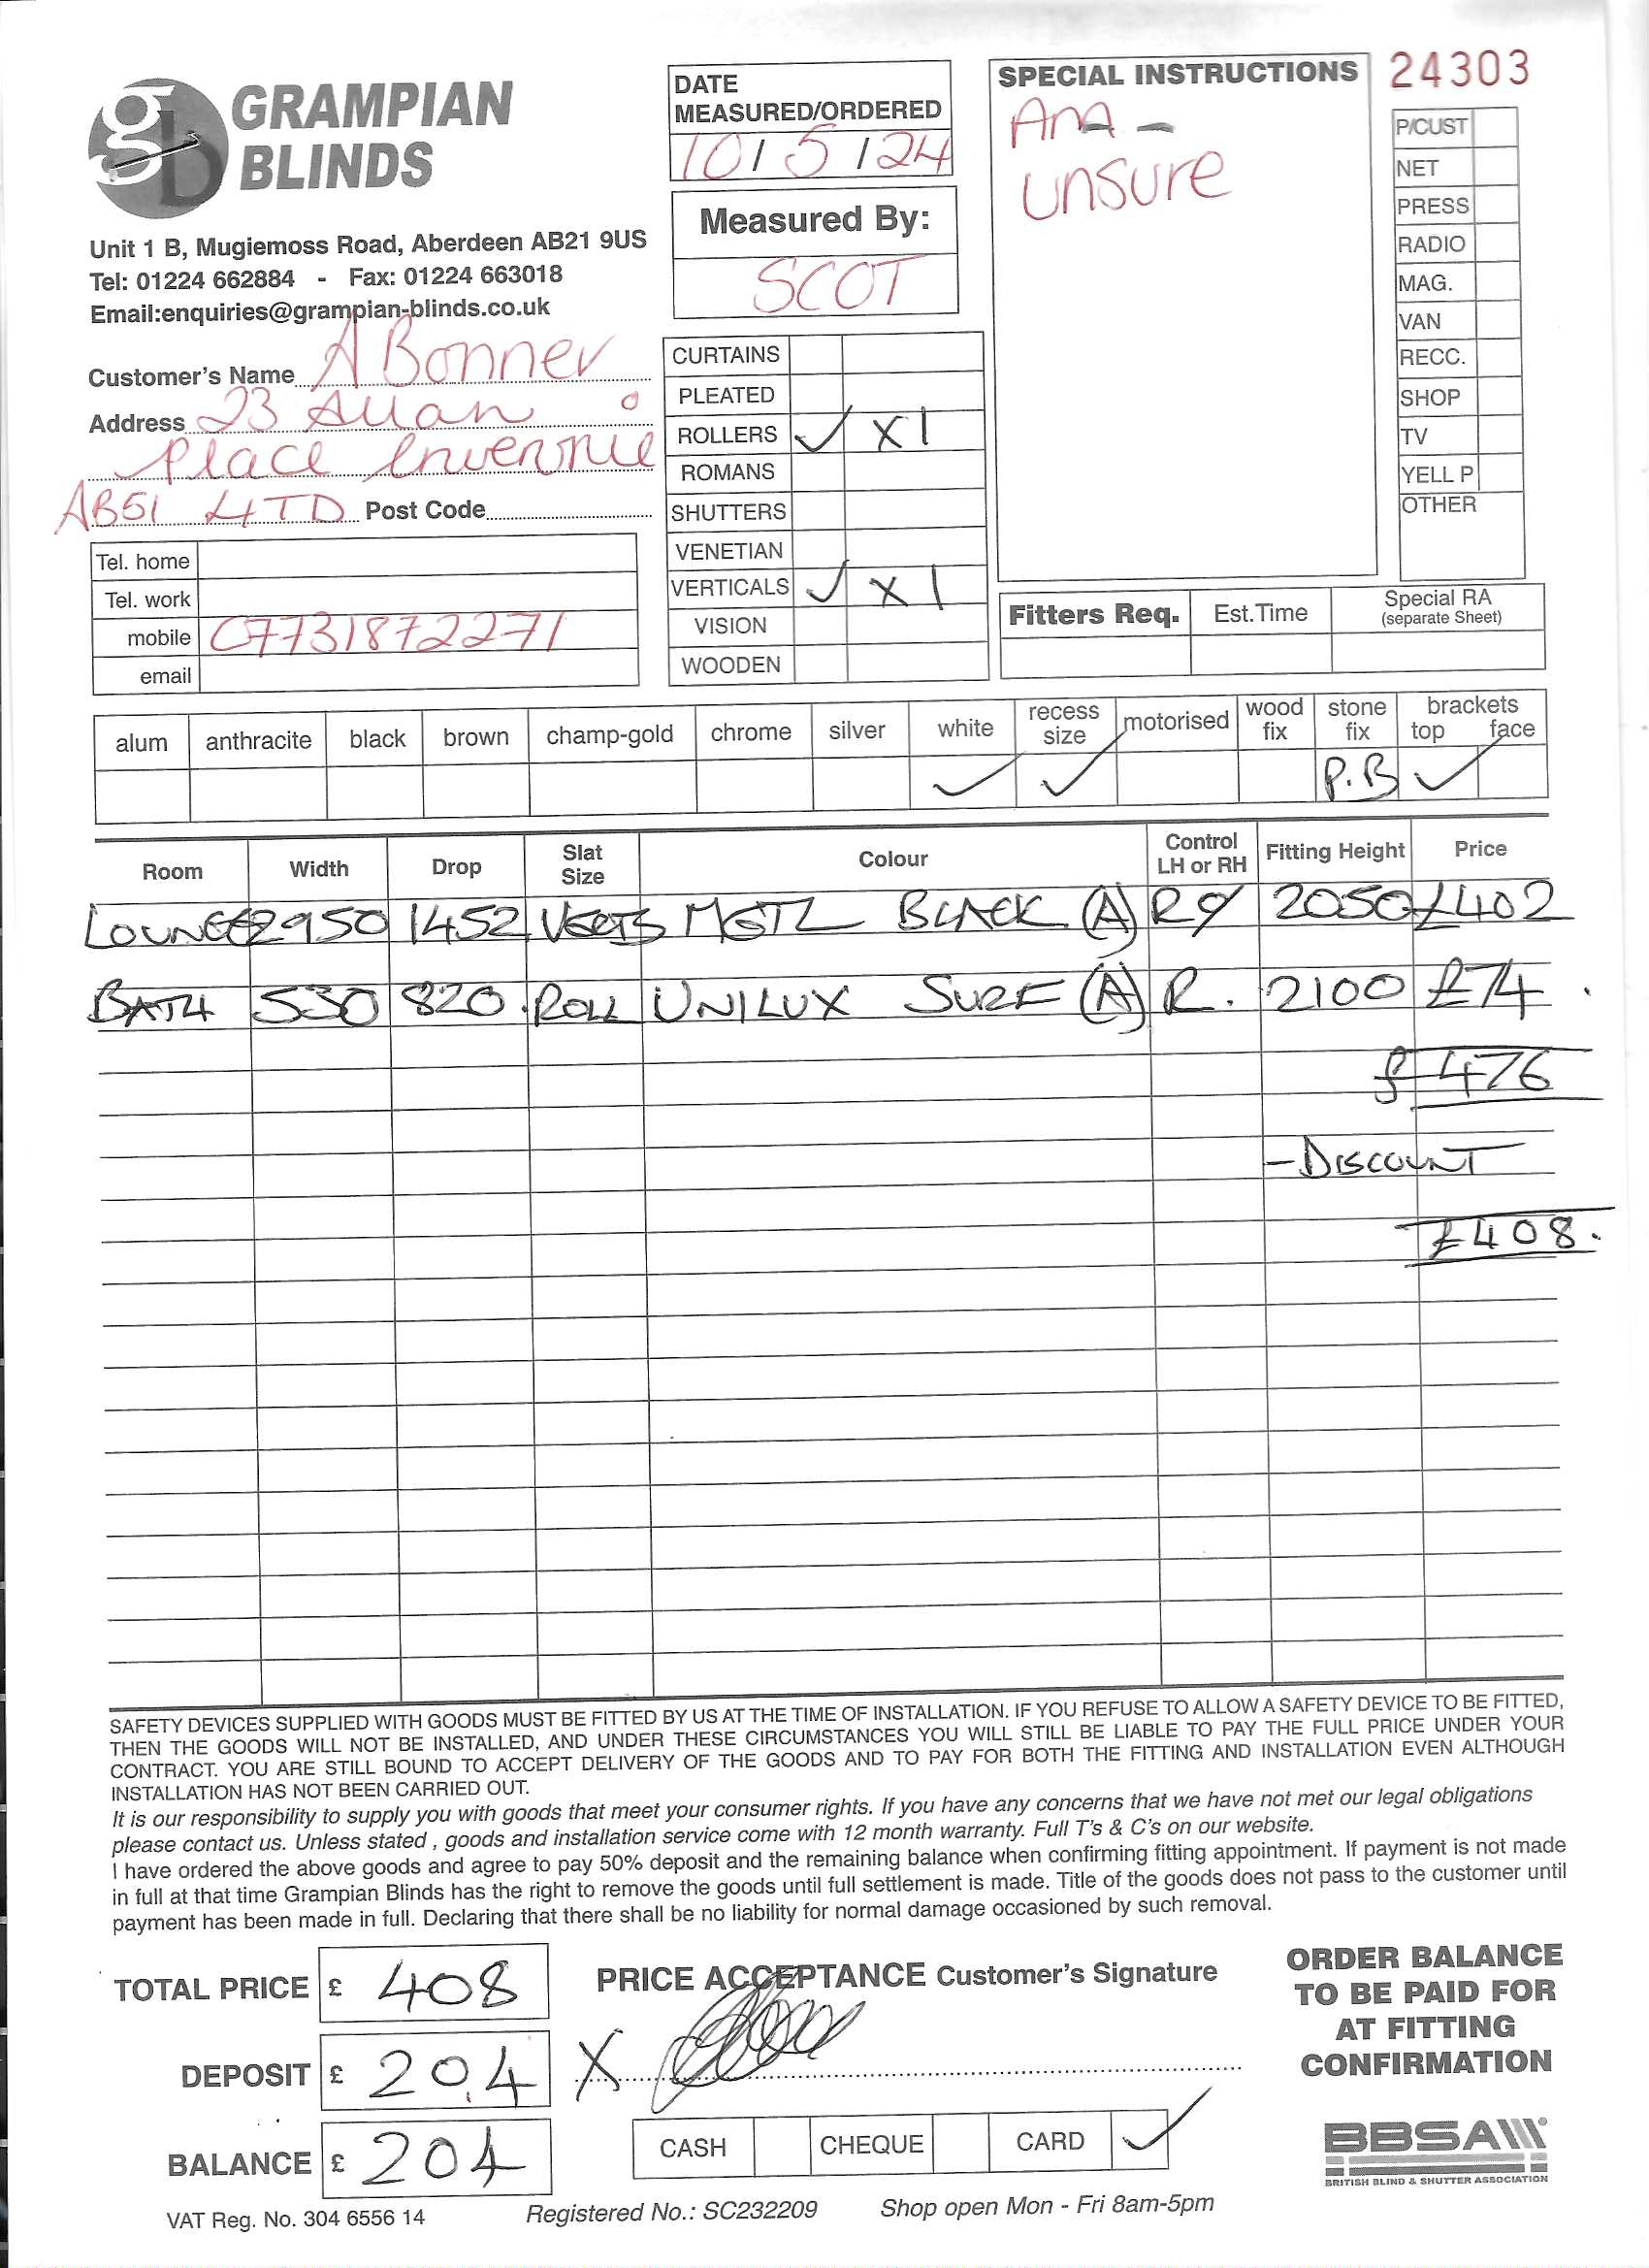 GRAMPIAN
BLINDS
Unit 1 B, Mugiemoss Road, Aberdeen AB21 9US
Tel: 01224 662884 - Fax: 01224 663018
Email:enquiries@grampian-blinds.co.uk
Customer's Name A Bonner
Address 23 Allan
Place Inverurie
AB51 4TD Post Code
Tel. home
Tel. work
mobile 07731872271
email
DATE
MEASURED/ORDERED
10/5/24
Measured By:
SCOT
CURTAINS
PLEATED
ROLLERS ✓ X1
ROMANS
SHUTTERS
VENETIAN
VERTICALS ✓ X1
VISION
WOODEN
SPECIAL INSTRUCTIONS
Am -
unsure
24303
P/CUST
NET
PRESS
RADIO
MAG.
VAN
RECC.
SHOP
TV
YELL P
OTHER
Fitters Req. Est.Time Special RA
(separate Sheet)
alum anthracite black brown champ-gold chrome silver white recess size motorised wood fix stone fix brackets top face
✓ ✓ P.B ✓
Room Width Drop Slat Size Colour Control LH or RH Fitting Height Price
LOUNGE 2950 1452 VERTS MGTL BLACK (A) R 2050 £402
BATH 530 820 ROLL UNILUX SURF (A) R. 2100 £74.
£476
- DISCOUNT
£408.
SAFETY DEVICES SUPPLIED WITH GOODS MUST BE FITTED BY US AT THE TIME OF INSTALLATION. IF YOU REFUSE TO ALLOW A SAFETY DEVICE TO BE FITTED,
THEN THE GOODS WILL NOT BE INSTALLED, AND UNDER THESE CIRCUMSTANCES YOU WILL STILL BE LIABLE TO PAY THE FULL PRICE UNDER YOUR
CONTRACT. YOU ARE STILL BOUND TO ACCEPT DELIVERY OF THE GOODS AND TO PAY FOR BOTH THE FITTING AND INSTALLATION EVEN ALTHOUGH
INSTALLATION HAS NOT BEEN CARRIED OUT.
It is our responsibility to supply you with goods that meet your consumer rights. If you have any concerns that we have not met our legal obligations
please contact us. Unless stated , goods and installation service come with 12 month warranty. Full T's & C's on our website.
I have ordered the above goods and agree to pay 50% deposit and the remaining balance when confirming fitting appointment. If payment is not made
in full at that time Grampian Blinds has the right to remove the goods until full settlement is made. Title of the goods does not pass to the customer until
payment has been made in full. Declaring that there shall be no liability for normal damage occasioned by such removal.
TOTAL PRICE £ 408
DEPOSIT £ 204
BALANCE £ 204
PRICE ACCEPTANCE Customer's Signature
X
CASH CHEQUE CARD ✓
ORDER BALANCE
TO BE PAID FOR
AT FITTING
CONFIRMATION
BBSA
BRITISH BLIND & SHUTTER ASSOCIATION
VAT Reg. No. 304 6556 14 Registered No.: SC232209 Shop open Mon - Fri 8am-5pm